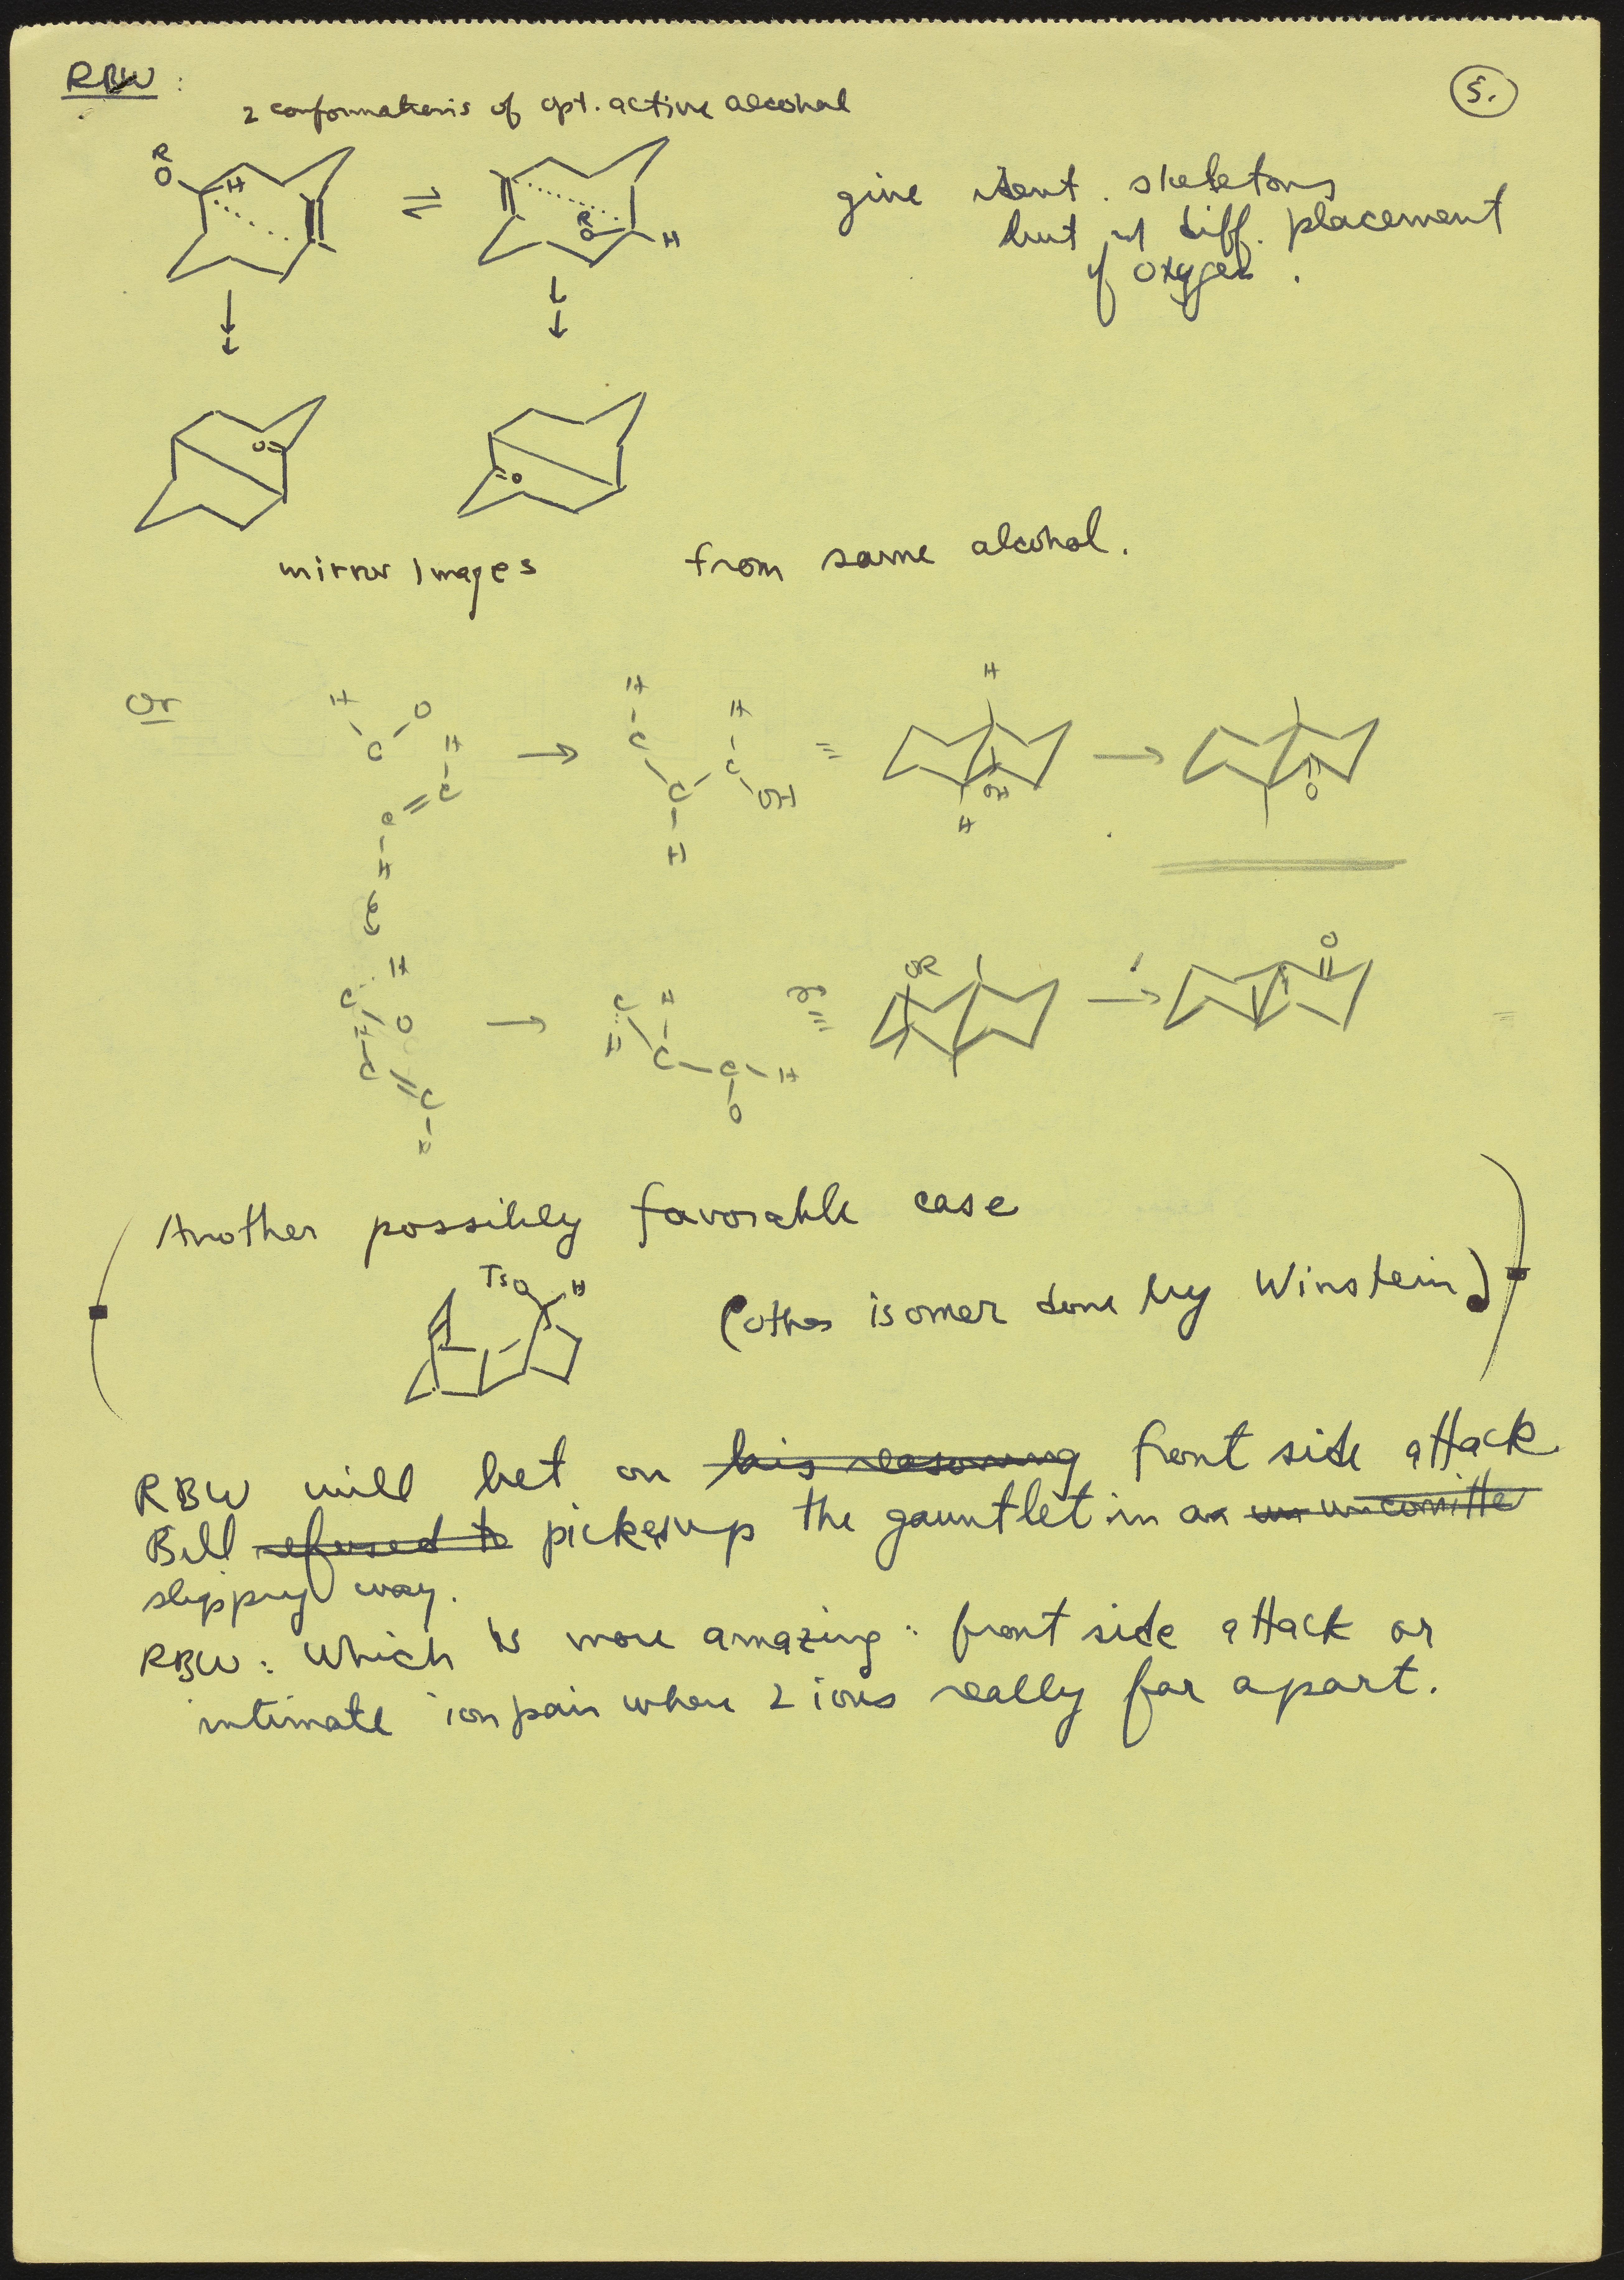 RBW :
5.
2 conformations of opt. active alcohol
R
O H
⇌
R
O H
give ident. skeletons
but w/ diff. placement
of oxygen.
O=
=O
mirror images from same alcohol.
Or
H O
C H
C
C
H
→
H
C H
C C
H OH
≡
H
OH
H
→
O
H
C O
C
C
H
→
C H
H C C H
O
≡
OR
→
O
Another possibly favorable case
TsO H
(other isomer done by Winstein)
RBW will bet on his reasoning front side attack
Bill refused to picks up the gauntlet in a un uncomitte
slippery way.
RBW: Which is more amazing: front side attack or
intimate ion pair where 2 ions really far apart.